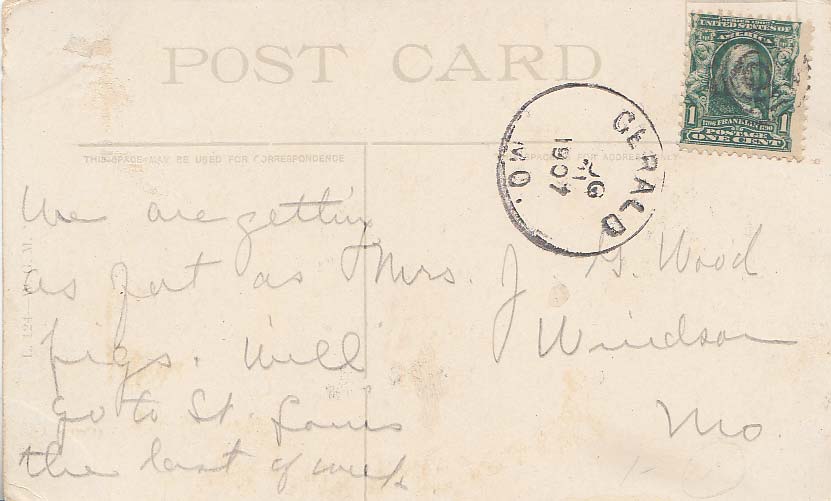 POST CARD
THIS SPACE MAY BE USED FOR CORRESPONDENCE
SERIES 1902
UNITED STATES OF
AMERICA
1 FRANKLIN 1
POSTAGE
ONE CENT
GERALD
MO.
1907
We are gettin
as fat as
pigs. Will
go to St. Louis
the last of week
Mrs. J. G. Wood
Windsor
Mo.